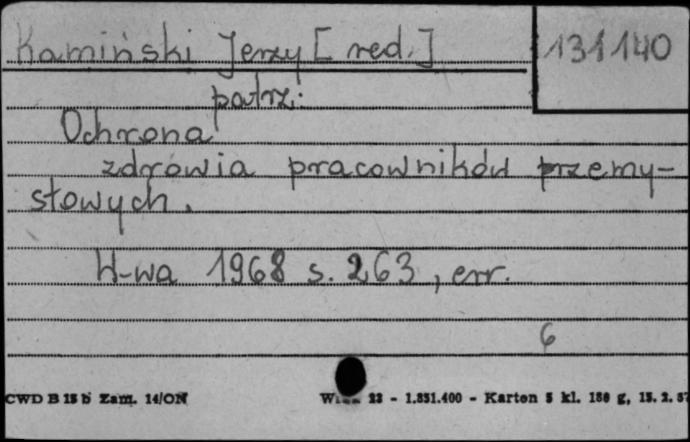 Kamiński Jerzy [red.]
131140
patrz:
Ochrona
zdrowia pracowników przemy-
słowych.
W-wa 1968 s. 263, err.
6
CWD B 15 b Zam. 14/ON
23 - 1.831.400 - Karten 5 kl. 180 g, 15. 2. 57